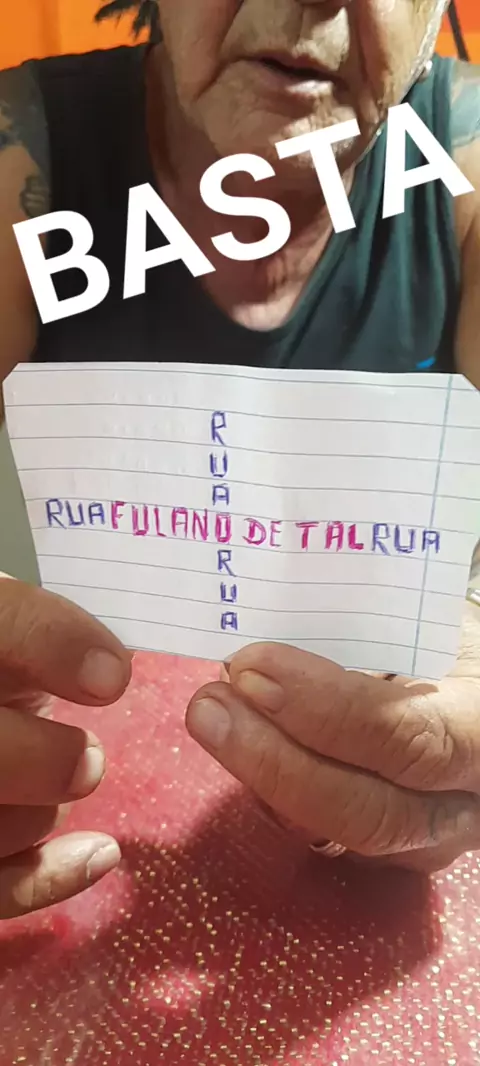 BASTA
R
U
A
RUAFULANO DE TALRUA
R
U
A